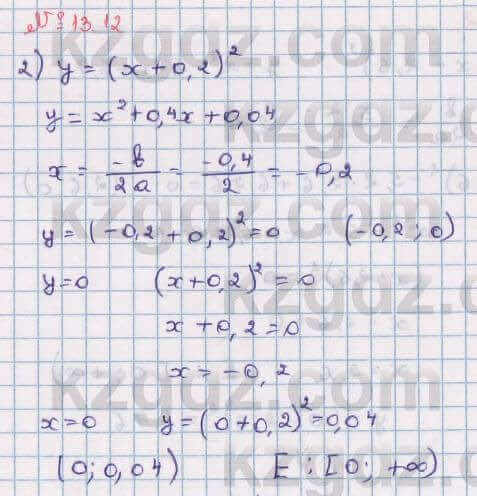 № 13.12
2) y = (x + 0,2)²
y = x² + 0,4x + 0,04
x = -b/2a = -0,4/2 = -0,2
y = (-0,2 + 0,2)² = 0 (-0,2; 0)
y = 0 (x + 0,2)² = 0
x + 0,2 = 0
x = -0,2
x = 0 y = (0 + 0,2)² = 0,04
(0; 0,04) E: [0; +∞)
kzgdz.com